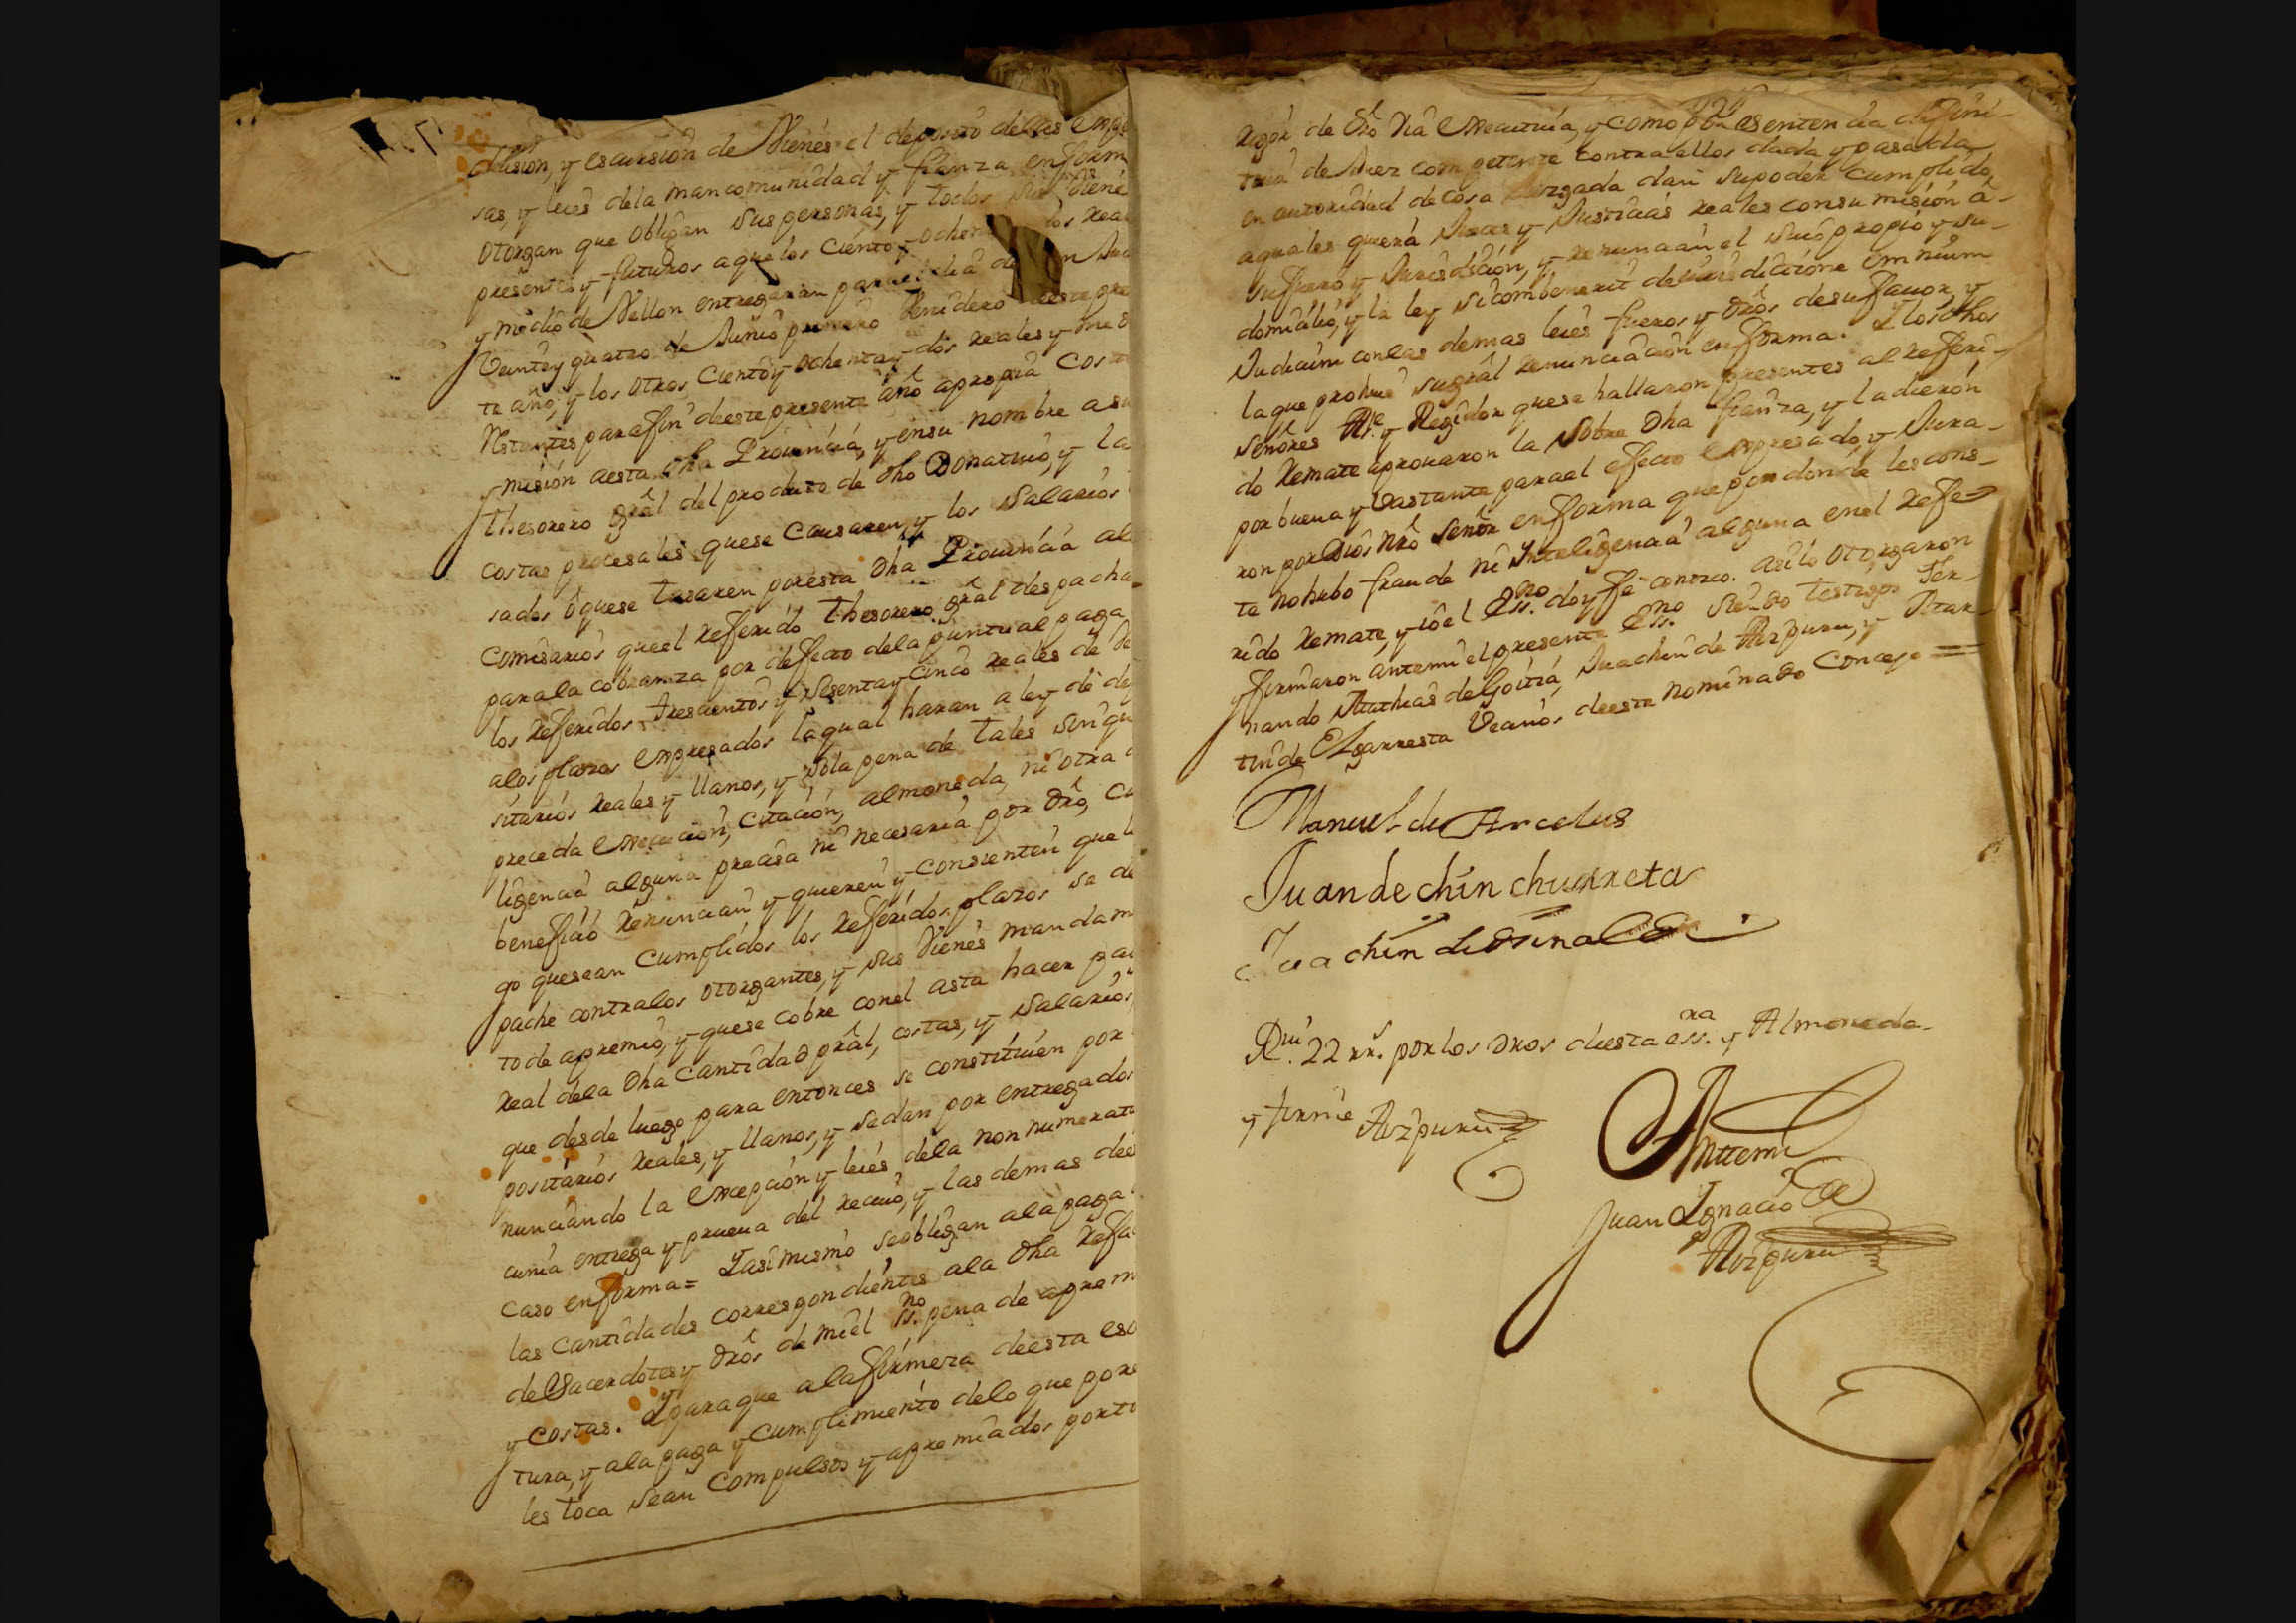 division, y escursion de Vienes el deposito delas expe
sas, y leies dela mancomunidad y fianza enform
otorgan que obligan sus personas, y todos sus Viene
presentes y futuros aque los ciento y ochen los Rea
y medio de Vellon entregaran para el dia de n Jua
Veinte y quatro de Junio primero Venidero deeste pre
te año, y los otros Ciento y ochenta y dos Reales y med
restantes parafin deeste presente año apropia Cos
mision aesta dha Prouincia, y ensu nombre asu
Thesorero grâl del producto de dho Donatiuo, y la
costas procesales quese Causaren, y los Salarios
sados ôquese tasaren poresta dha Prouincia al
Comisarios queel Referido Thesorero grâl despacha
parala cobranza por defecto dela puntual paga
los Referidos trescientos y sesenta y cinco Reales de Ve
alos plazos expresados laqual haran a ley de de
sitarios Reales y llanos, y sola pena de tales sinqu
preceda execucion, citacion, almoneda, ni otra
ligencia alguna precisa ni necesaria por dro, cu
beneficio Renuncian y quieren y consienten que
go quesean Cumplidos los Referidos plazos se de
pache contralos otorgantes, y sus Vienes mandam
to de apremio, y quese cobre conel asta hacer pa
Real dela dha Cantidad prâl, costas, y Salarios
que desde luego para entonces se constituien por
positarios Reales, y llanos, y sedan por entregados
nunciando la excepcion y leies dela non numerat
cunia entrega y prueua del reciuo, y las demas dee
caso enforma = Yasimismo seobligan ala paga
las cantidades correspondientes ala dha Refa
de Sacerdotes y drôs de mi el ss.no pena de aprem
y costas. Y para que alafirmeza deesta esc
tura, y ala paga y cumplimiento delo que pore
les toca sean compulsos y apremiados por to
rigor de dro Via executiua, y como por sentencia difini-
tiua de Juez competente contraellos dada y pasada
en autoridad de cosa Juzgada dan supoder cumplido
aquales quiera Jueces y Justicias Reales consumision â
sufuero y Jurisdicion, y Renuncian el suio propio y su
domicilio, y la ley sicombenerit dejurisdictione omnium
Judicum conlas demas leies fueros y drôs desufauor, y
laque prohiue sugrâl Renunciacion enforma. Y los dhos
señores Alc.e y Regidor quese hallaron presentes al Referi-
do Remate aprouaron la sobre dha fianza, y ladieron
porbuena y Vastante parael efecto expresado, y Jura-
ron por Dios nrô Señor enforma que pordonde lescons-
ta nohubo fraude ni Inteligencia alguna enel Refe-
rido Remate, y iô el Ess.no doy fe conozco. asilo otorgaron
y firmaron antemi el presente Ess.no siendo testigos Fer-
nando Mathias deGoitia, Juachin de Aizpuru, y Mar-
tin de Elgarresta Vecinos deeste nominado Concejo =
Manuel de Arcelus
Juan de chinchurreta
Juachin de
Rui. 22 rr.s por los dros deesta ess.ra y Almoneda
y firmé Aizpuru
Anttemi
Juan Ignacio de
Aizpuru